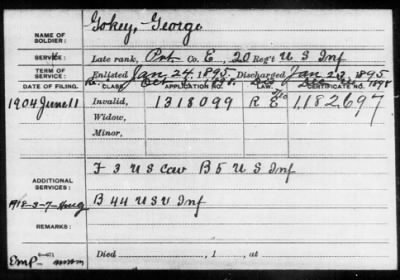 Gokey, George
NAME OF SOLDIER:
SERVICE: Late rank, Prt. Co. E, 20 Reg't U S Inf
TERM OF SERVICE: Enlisted Jan 24, 1895, Discharged Jan 23, 1895
Re. Oct 1898. Dis 1898
DATE OF FILING. CLASS. APPLICATION NO. LAW. CERTIFICATE NO.
1904 June 11 Invalid, 1318099 R. E. 1,182,697
Widow,
Minor,
F 3 U S Cav B 5 U S Inf
ADDITIONAL SERVICES:
1918-3-7- B 44 U S V Inf
REMARKS:
Emp- Died , 1 , at